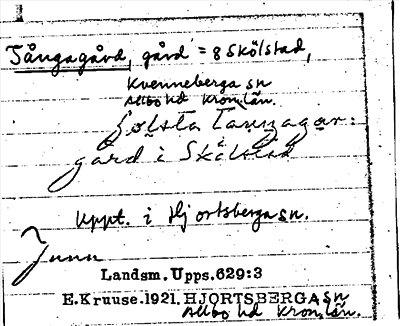 Tångagård, gård = 8 Skölstad,
Kvenneberga sn
Allbo hd Kron.län.
gård i Skölstad
Uppt. i Hjortsberga sn.
Landsm. Upps. 629:3
E. Kruuse. 1921. HJORTSBERGA sn
Allbo hd Kron.län.